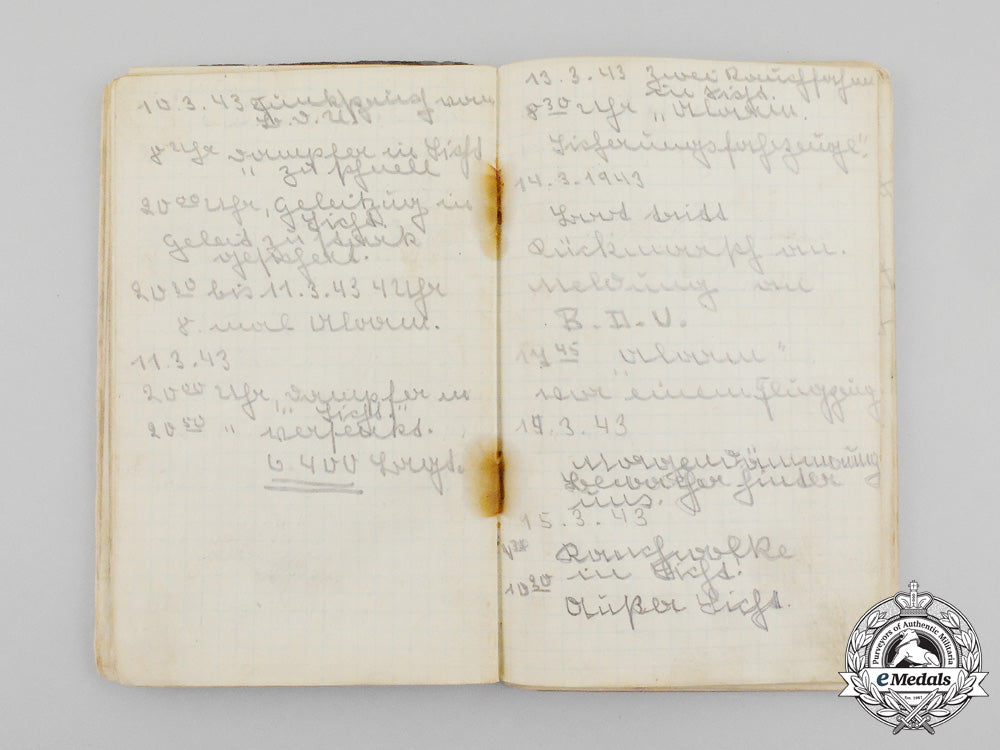 10.3.43 Funkspruch vom
B.d.U.
8 Uhr Dampfer in Sicht
" zu schnell
20 00 Uhr, Geleitzug in
Sicht.
Geleit zu stark
gesichert.
20 30 bis 11.3.43 4 Uhr
8. mal Alarm.
11.3.43
20 00 Uhr, Dampfer in
"Sicht."
20 50 " versenkt.
6 400 
13.3.43 Zwei Rauchfahnen
in Sicht.
8 30 Uhr "Alarm.
Sicherungsfahrzeuge".
14.3.1943
Boot tritt
Rückmarsch an.
Meldung an
B.D.U.
17 45 "Alarm"
vor einem Flugzeug
14.3.43
Morgendämmerung
Bewacher hinter
uns.
15.3.43
Rauchwolke
in Sicht.
10 30
Außer Sicht.
Purveyors of Authentic Militaria
eMedals
Est. 1967